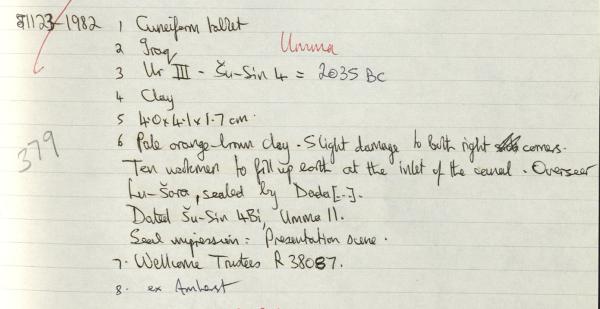 1123-1982 1 Cuneiform tablet
2 Iraq Umma
3 Ur III - Šu-Sin 4 = 2035 BC
4 Clay
5 4.0 x 4.1 x 1.7 cm.
6 Pale orange-brown clay. Slight damage to both right corners.
379
Ten workmen to fill up earth at the inlet of the canal. Overseer
Lu-Šara, sealed by Dada[..].
Dated Šu-Sin 4Bi, Umma II.
Seal impression: Presentation scene.
7. Wellcome Trustees R 38087.
8. ex Amherst